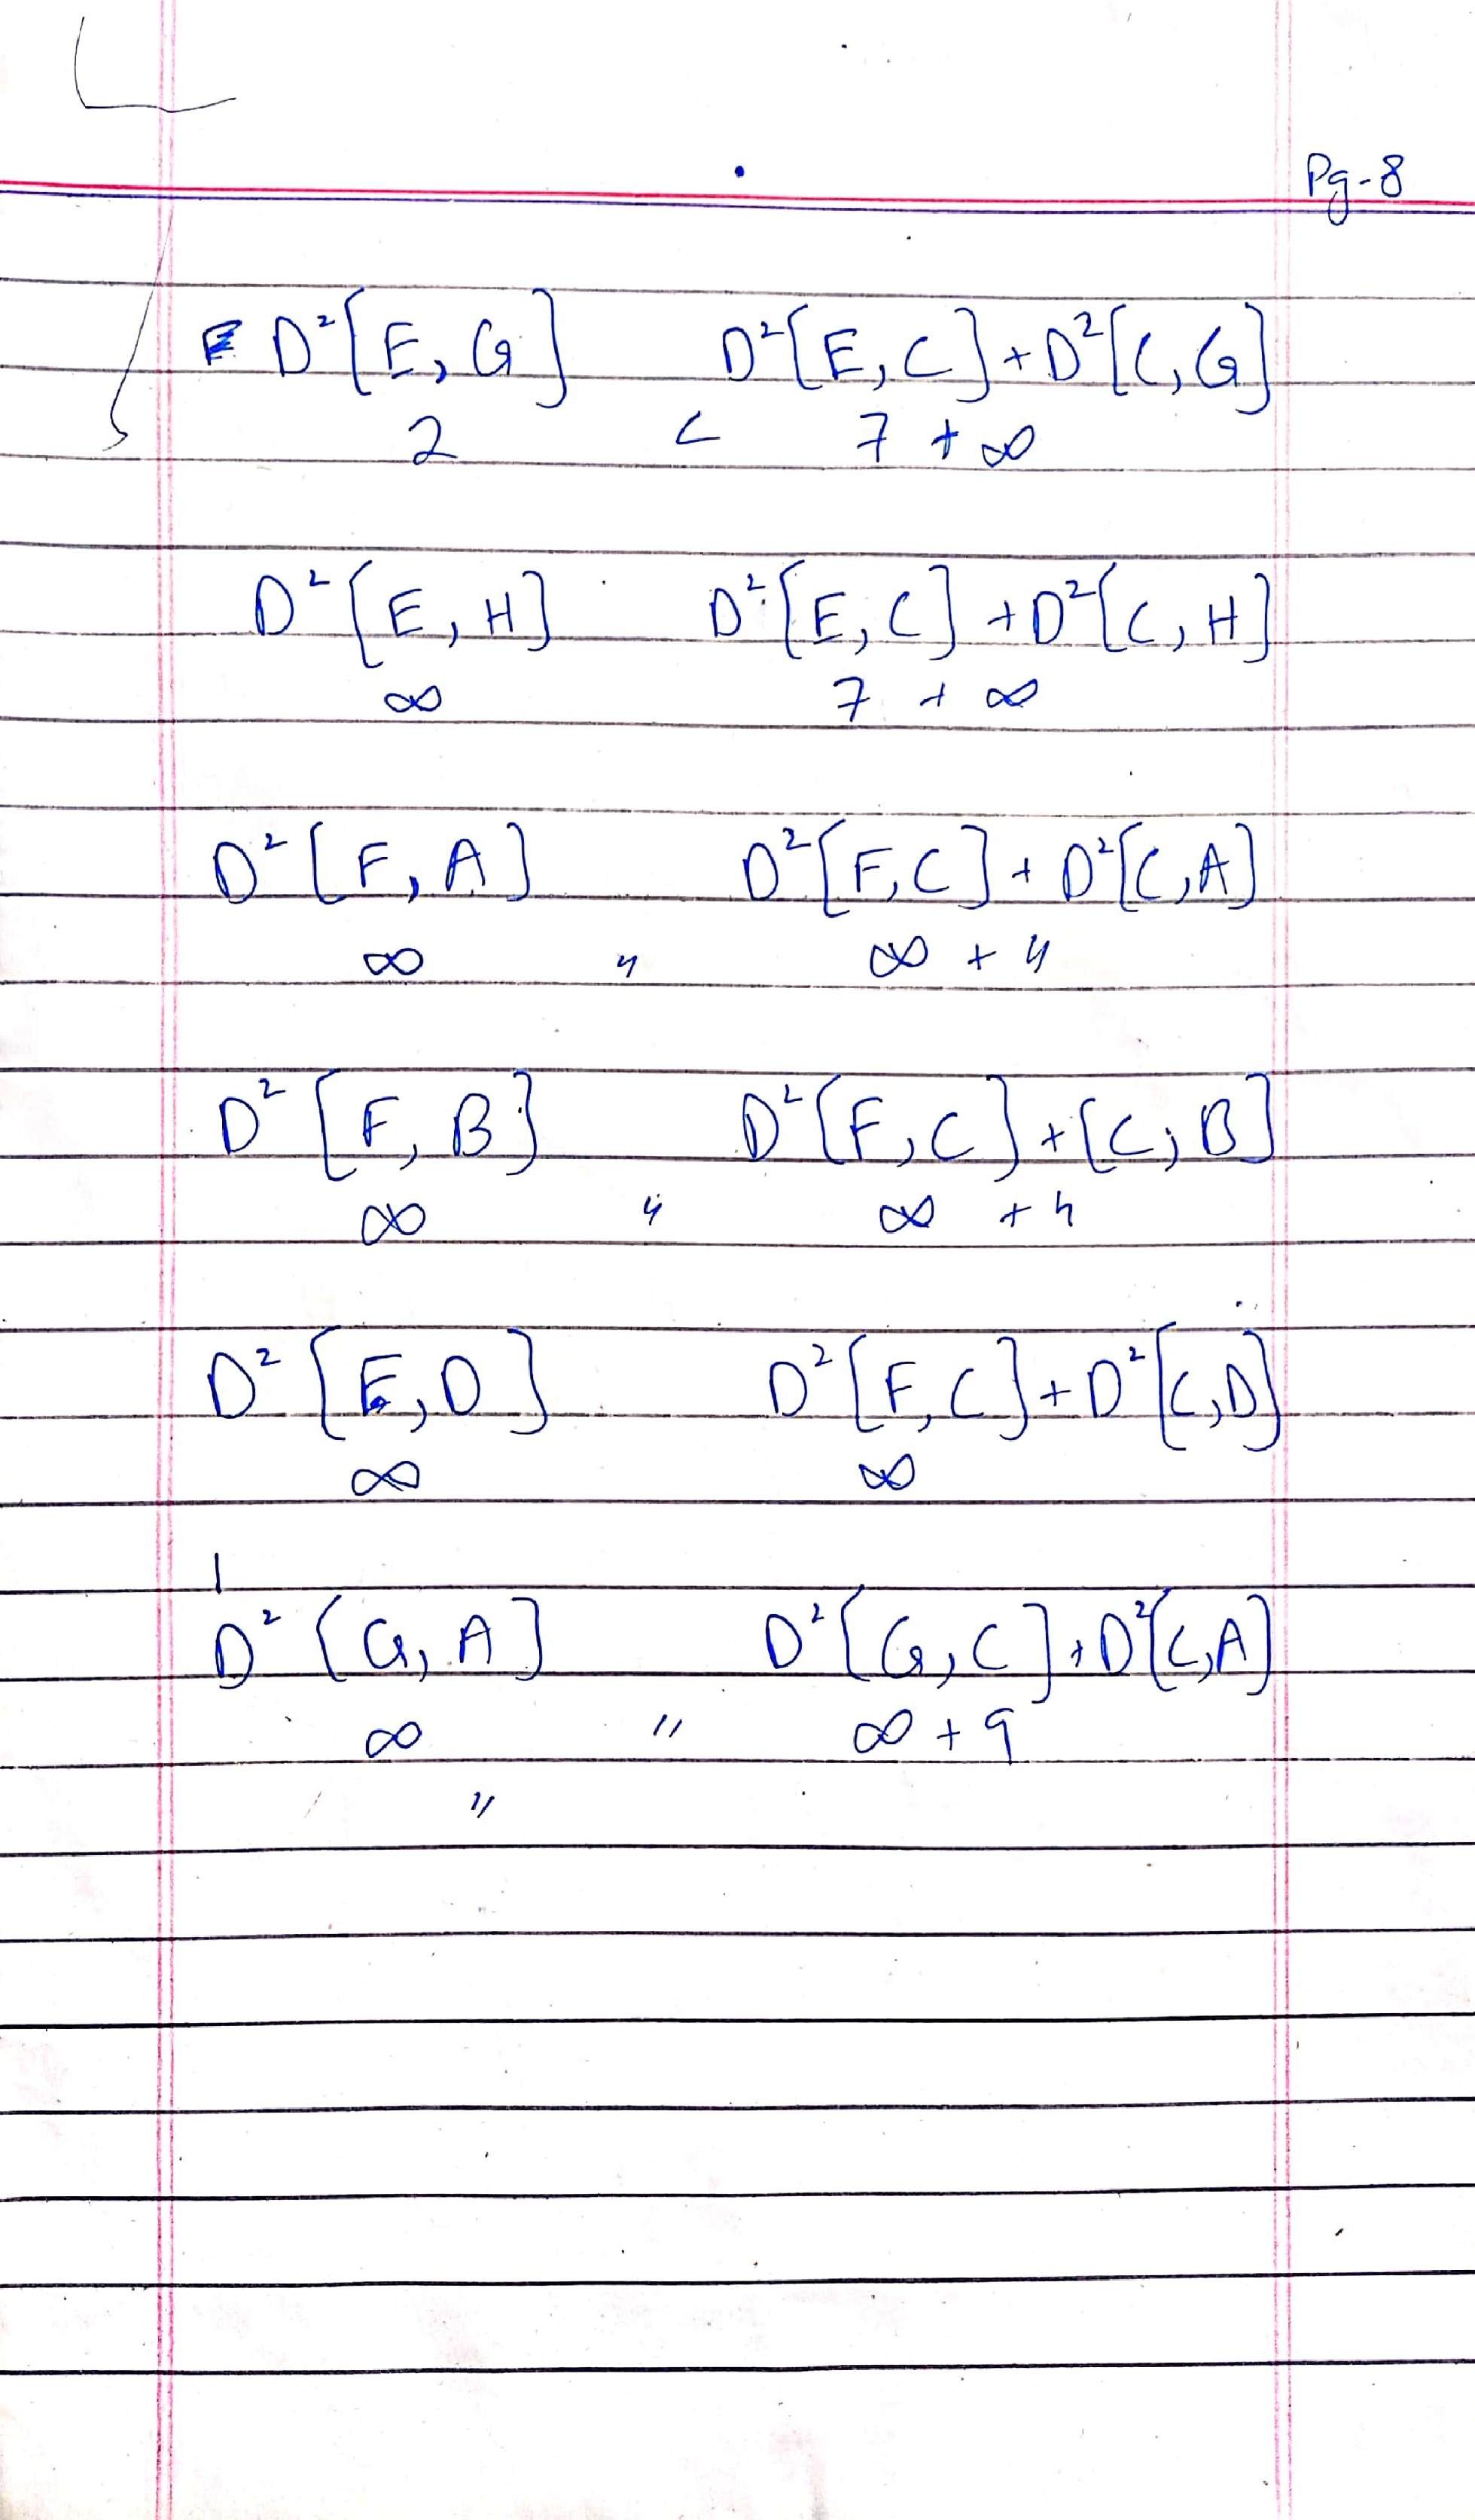 Pg-8
D²[E, G] D²[E, C] + D²[C, G]
2 < 7 + ∞
D²[E, H] D²[E, C] + D²[C, H]
∞ 7 + ∞
D²[F, A] D²[F, C] + D²[C, A]
∞ " ∞ + 4
D²[F, B] D²[F, C] + [C, B]
∞ " ∞ + 4
D²[E, D] D²[F, C] + D²[C, D]
∞ ∞
D²[G, A] D²[G, C] + D²[C, A]
∞ " ∞ + 9
"